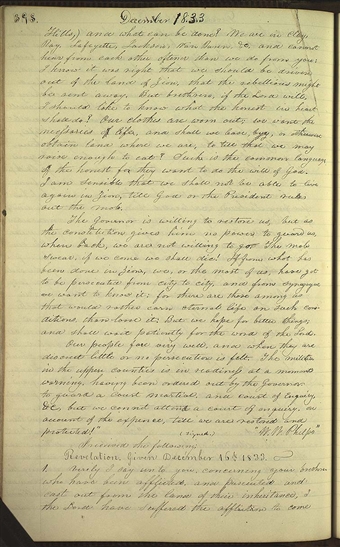 398. December 1833
Hills,) and what can be done? We are in Clay,
Ray, Lafayette, Jackson, Van Buren, &c. and cannot
hear from each other oftener than we do from you.
I know it was right that we should be driven
out of the land of Zion, that the rebellious might
be sent away. But brethren, if the Lord will,
I should like to know what the honest in heart
shall do? Our clothes are worn out; we want the
necessaries of life, and shall we lease, buy, or otherwise
obtain land where we are, to till that we may
raise enough to eat? Such is the common language
of the honest for they want to do the will of God.
I am sensible that we shall not be able to live
again in Zion, till God or the President rules
out the mob.
The Governor is willing to restore us, but as
the constitution gives him no power to guard us,
when back, we are not willing to go. The mob
swear, if we come we shall die! If from what has
been done in Zion, we, or the most of us, have got
to be persecuted from city to city, and from synagogue
we want to know it; for there are those among us
that would rather earn eternal life on such con-
ditions than lose it; But we hope for better things,
and shall wait patiently for the word of the Lord.
Our people fare very well, and when they are
discreet little or no persecution is felt. The militia
in the upper counties is in readiness at a moments
warning, having been ordered out by the Governor
to guard a court martial, and court of enquiry,
&c. but we cannot attend a court of enquiry, on
account of the expense, till we are restored and
protected." (signed) "W. W. Phelps"
Received the following
Revelation, Given December 16th 1833.
1. Verily I say unto you, concerning your brethren
who have been afflicted, and persecuted and
cast out from the land of their inheritance, I
the Lord have suffered the affliction to come